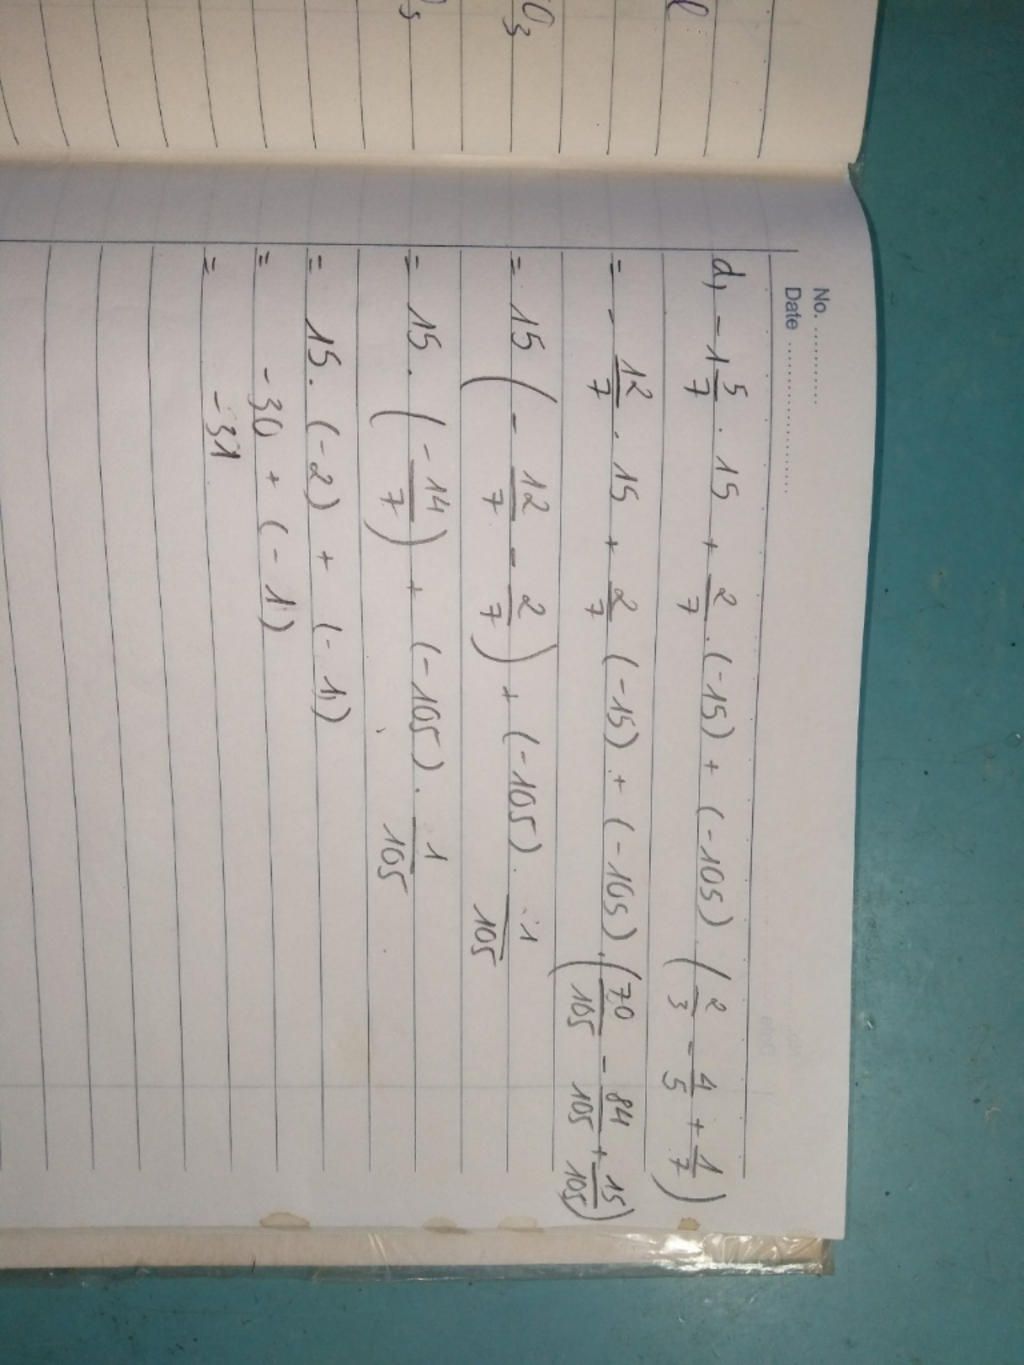 No. ............
Date ........................
d, -1 5/7 . 15 + 2/7 . (-15) + (-105) . (2/3 - 4/5 + 1/7)
= - 12/7 . 15 + 2/7 (-15) + (-105) . (70/105 - 84/105 + 15/105)
= 15 (- 12/7 - 2/7) + (-105) . 1/105
= 15 . (-14/7) + (-105) . 1/105
= 15 . (-2) + (-1)
= -30 + (-1)
= -31